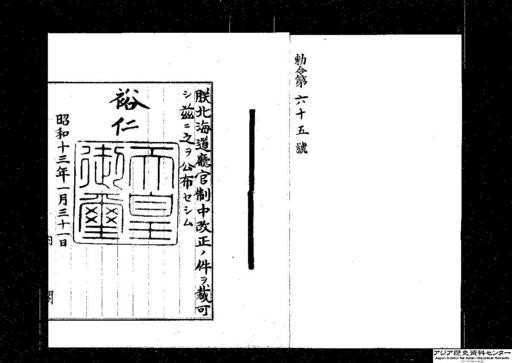 勅令第六十五號
朕北海道廳官制中改正ノ件ヲ裁可
シ茲ニ之ヲ公布セシム
裕仁
天皇御璽
昭和十三年一月三十一日
内閣
アジア歴史資料センター
Japan Center for Asian Historical Records